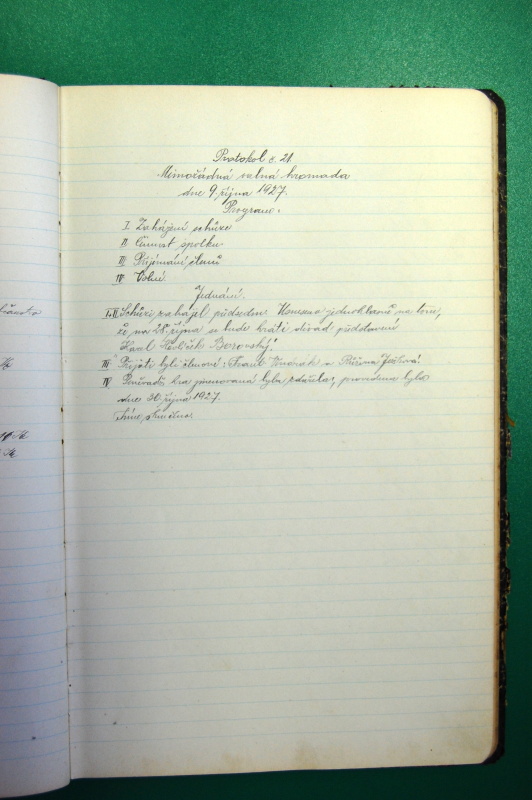 Protokol č. 21.
Mimořádná valná hromada
dne 9. října 1927.
Program.
I. Zahájení schůze
II. Činnost spolku.
III. Přijímání členů
IV. Volné.
Jednání.
I.-II. Schůzi zahájil předseda. Usneseno jednohlasně na tom,
že na 28. října se bude hráti divad. představení
Karel Havlíček Borovský.
III. Přijati byli členové: Frant. Vondrák a Růžena
IV. Poněvadž hra jmenovaná byla zdařilá, provedena byla
dne 30. října 1927.